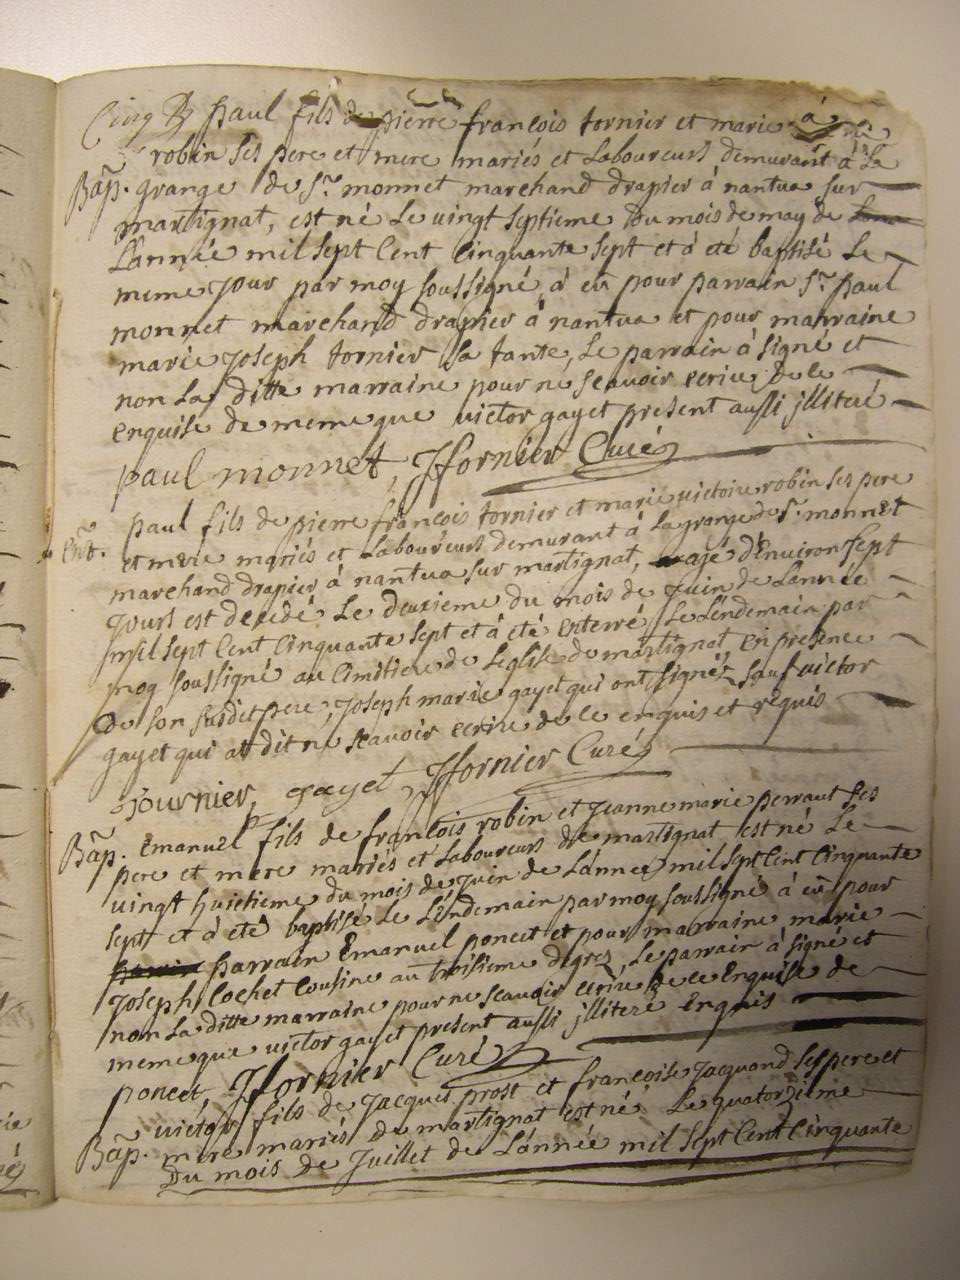 Cinq paul fils de pierre françois tornier et marie à
robin ses pere et mere mariés et Laboureurs demurant à La
Bap. grange de Sr. monnet marchand drapier à nantua sur
martignat, est né Le vingt septieme du mois de may de
L'année mil sept Cent Cinquante sept et à eté baptisé Le
meme jour par moy soussigné à eu pour parrain Sr. paul
monnet marchand drapier à nantua et pour marraine
marie joseph tornier sa tante, Le parrain à signé et
non La ditte marraine pour ne sçavoir ecrire de ce
enquise de meme que victor gayet present aussi jlliteré
paul monnet, Jfornier Curé
Ent. paul fils de pierre françois tornier et marie victoire robin ses pere
et mere mariés et Laboureurs demurant à La grange de Sr. monnet
marchand drapier à nantua sur martignat, agé d'Environ sept
jours est decedé Le deuxieme du mois de Juin de L'année
mil sept Cent Cinquante sept et à eté enterré Le Lendemain par
moy soussigné au Cimitiere de L'eglise de martignat, en presence
de son susdit pere, joseph marie gayet qui ont signéz sauf victor
gayet qui at dit ne sçavoir ecrire de ce enquis et requis
fournier, gayet, Jfornier Curé
Bap. Emanuel fils de françois robin et jeanne marie perraut ses
pere et mere mariés et Laboureurs de martignat est né Le
vingt huictieme du mois de Juin de L'année mil sept Cent Cinquante
sept et à eté baptisé Le L'Endemain par moy soussigné à eu pour
parrain Emanuel poncet et pour marraine marie
joseph Cochet Cousine au troisieme degrez, Le parrain à signé et
non La ditte marraine pour ne sçavoir ecrire de ce Enquise de
meme que victor gayet present aussi jlliteré Enquis
poncet, Jfornier Curé
victor fils de Jacques prost et françoise Jacquand ses pere et
Bap. mere mariés de martignat est né Le quatorzieme
Du mois de Juillet de L'année mil sept Cent Cinquante